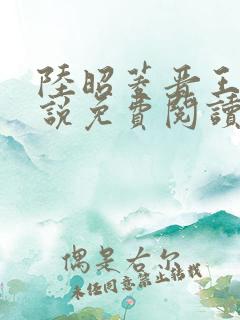 陸昭菱晋王
說免費閱讀
偶是右尔
未经同意禁止转载